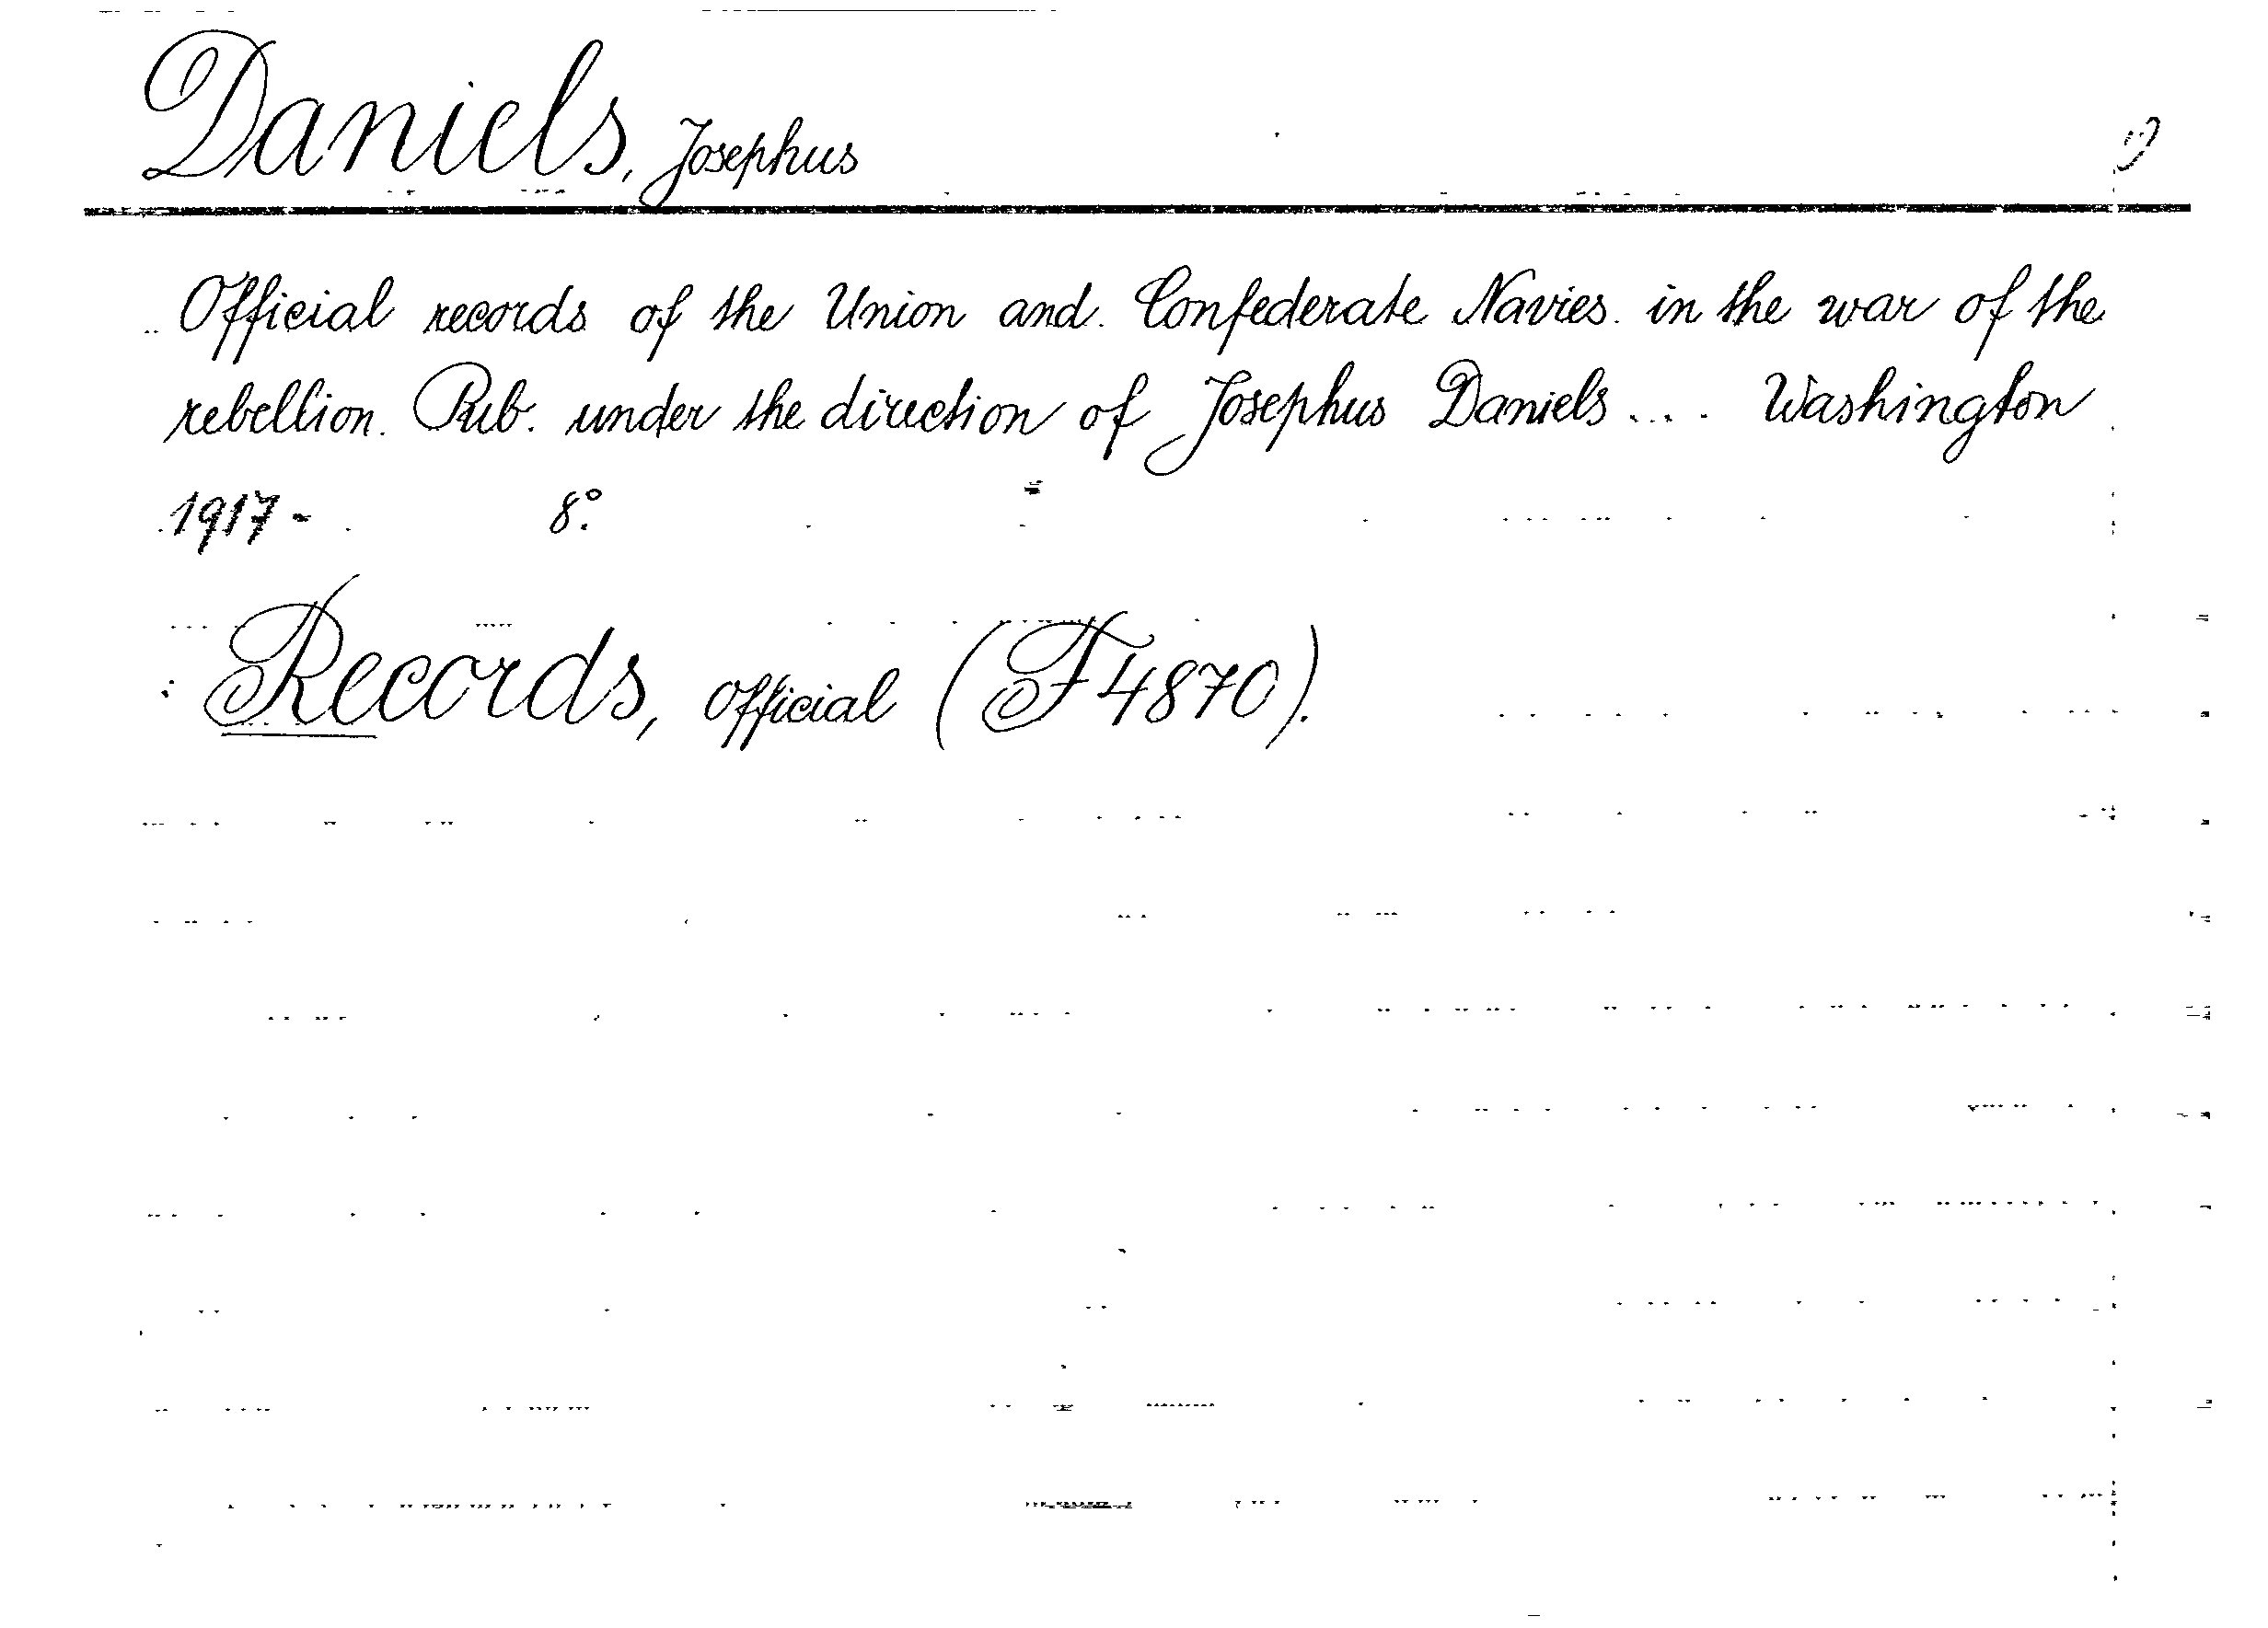 Daniels, Josephus
Official records of the Union and Confederate Navies in the war of the
rebellion. Pub. under the direction of Josephus Daniels .... Washington
1917- 8°.
Records, official (F 4870).